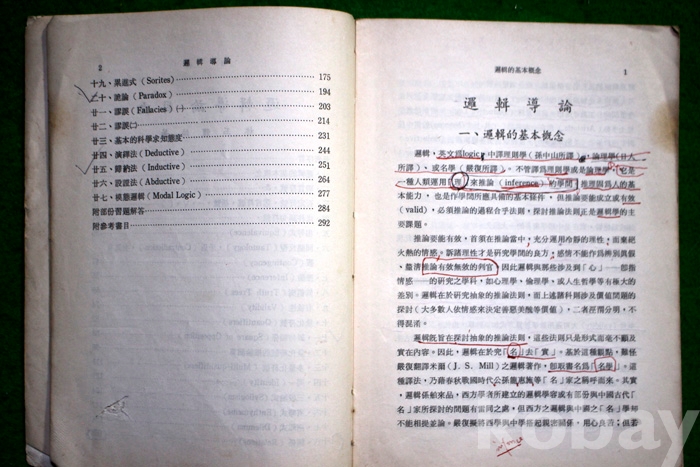 2 邏輯導論
十九、累進式 (Sorites) 175
二十、詭論 (Paradox) 194
廿一、謬誤 (Fallacies) ㈠ 203
廿二、謬誤㈡ 214
廿三、基本的科學求知態度 231
廿四、演繹法 (Deductive) 244
廿五、歸納法 (Inductive) 251
廿六、設證法 (Abductive) 264
廿七、模態邏輯 (Modal Logic) 277
附部份習題解答 284
附參考書目 292
邏輯的基本概念 1
邏輯導論
一、邏輯的基本概念
邏輯，英文為logic，中譯理則學（孫中山所譯），論理學（日人
所譯）、或名學（嚴復所譯）。不管譯為理則學或是論理學，它是
一種人類運用「理」來推論 (inference) 的學問，推理固為人的基
本能力，也是作學問所應具備的基本條件，但推論要能成立或有效
(valid)，必須推論的過程合乎法則，探討推論法則正是邏輯學的主
要課題。
推論要能有效，首須在推論當中，充分運用冷靜的理性，而棄絕
火熱的情感。訴諸理性才是研究學問的良方，感情不能作為辨別真假、
釐清推論有效無效的判官。因此邏輯與那些涉及到「心」——即指
情感——的研究之學科，如心理學、倫理學，或人生哲學等有極大的
差別。邏輯在於研究抽象的推論法則，而上述諸科則涉及價值問題的
探討（大多數人依情感來決定善惡美醜等價值），二者涇渭分明，不
得混淆。
邏輯旣旨在探討抽象的推論法則，這些法則只是形式而毫不顧及
實在內容。因此，邏輯在於究「名」去「實」。基於這種觀點，難怪
嚴復翻譯米爾 (J. S. Mill) 之邏輯著作，卽取書名爲「名學」。這
種譯法，乃藉春秋戰國時代公孫龍惠施等「名」家之稱呼而來。其實，
邏輯係舶來品，西方學者所建立的邏輯學容或有部份與中國古代「
名」家所探討的問題有雷同之處，但西方之邏輯與中國之「名」學却
不能相提並論。嚴復擬將西學與中學搭起親密關係，用心良苦；但若